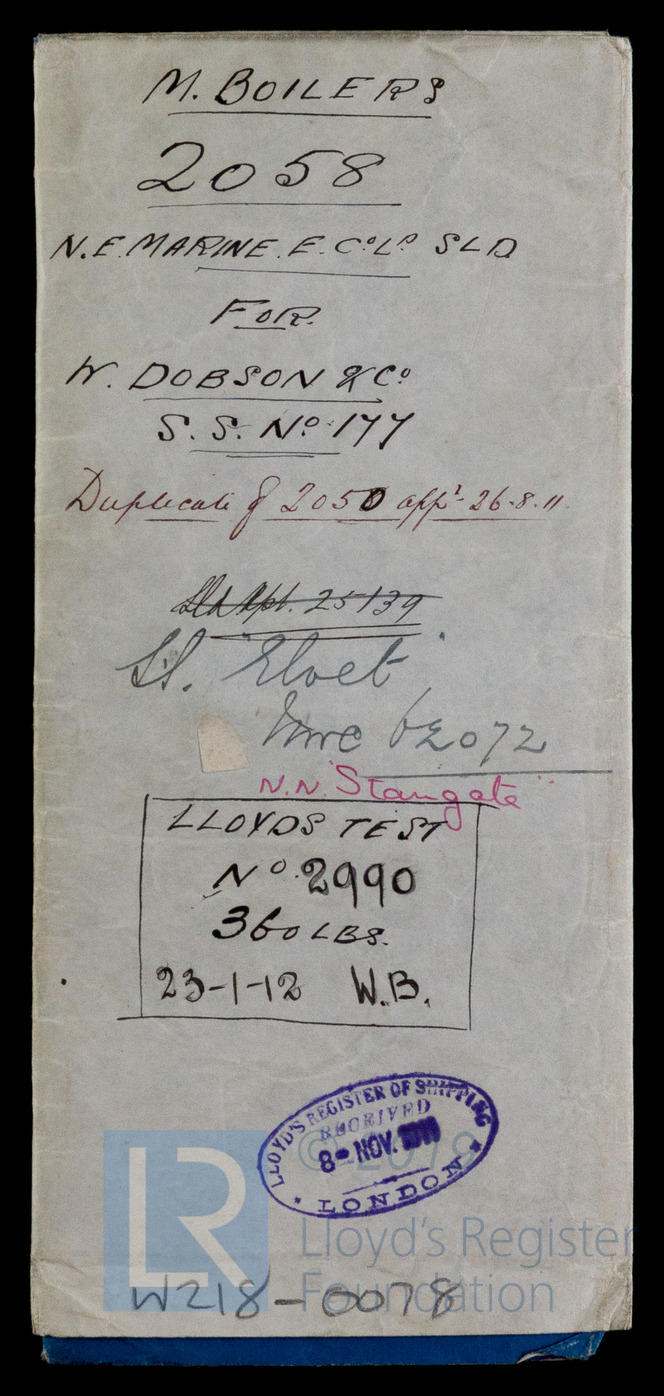 M. BOILERS
2058
N.E. MARINE. E. Cº Lᴰ SLD
FOR.
W. DOBSON & Cº
S.S. Nº 177
Duplicate of 2050 appᵈ 26.8.11.
Sld Rpt. 25139
"Elvet"
62072
N.N. "Stangate"
LLOYDS TEST
Nº 2990
360 LBS.
23-1-12 W.B.
LLOYD'S REGISTER OF SHIPPING
RECEIVED
8 NOV.
LONDON
© 2019
LR
Lloyd's Register
Foundation
W218-0078